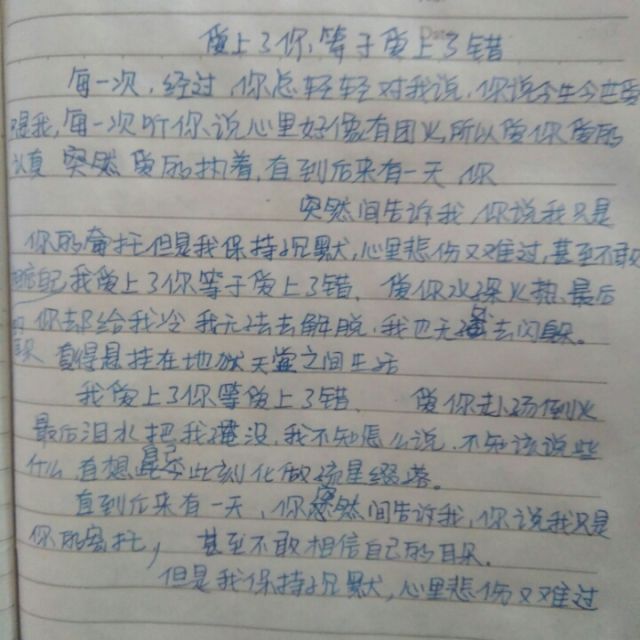 爱上了你、等于爱上了错
Date
每一次，经过，你总轻轻对我说，你说今生今世爱
我，每一次听你说心里好像有团火所以爱你爱的
认真 突然 爱的执着，直到后来有一天，你
突然间告诉我，你说我只是
你的寄托但是我保持沉默，心里悲伤又难过，甚至不敢
我爱上了你等于爱上了错、爱你水深火热，最后
你却给我冷，我无法去解脱，我也无法去闪躲。
悬挂在地狱天堂之间生活
我爱上了你等爱上了错、爱你赴汤倒火
最后泪水把我淹没，我不知怎么说，不知该说些
什么 此刻化做流星
直到后来有一天，你突然间告诉我，你说我只是
你的寄托， 甚至不敢相信自己的耳朵。
但是我保持沉默，心里悲伤又难过